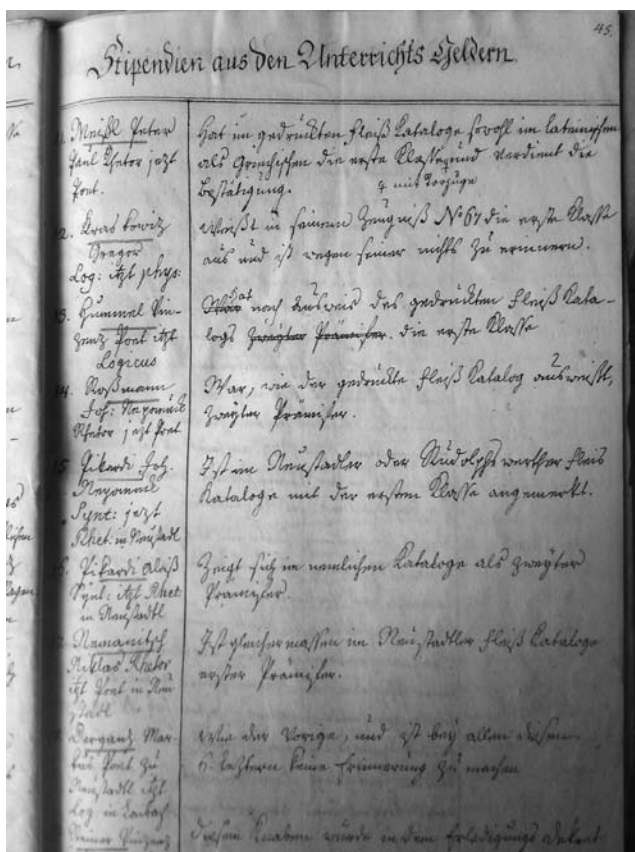 45.
Stipendien aus den Unterrichts Geldern.
11. Meißl Peter
Rhetor jezt
Poet.
Hat im gedruckten Fleiß Kataloge sowohl im lateinischen
als Griechischen die erste Klasse und verdient die
mit Vorzuge
Bestätigung.
12. Kraskowitz
Gregor
Log: itzt phys:
Weißt in seinem Zeugniß No 67 die erste Klasse
aus und ist wegen seiner nichts zu erinnern.
13. Hummel Vin-
zenz Poet itzt
Logicus
Hat
War nach Ausweis des gedruckten Fleiß Kata-
logs zweyter Prämifer. die erste Klasse
14. Roßmann
Joh: Nepomuk
Rhetor jezt Poet
War, wie der gedruckte Fleiß Katalog ausweißt,
zweyter Prämifer.
15. Pikardi Joh.
Nepomuk
Synt: jezt
Rhet. in Neustadl
Ist im Neustadler oder Rudolphswerther Fleis
Kataloge mit der ersten Klasse angemerkt.
16. Pikardi Aloiß
Synt: itzt Rhet
in Neustadtl
Zeigt sich im nemlichen Kataloge als zweyter
Prämifer.
Nemanitsch
Niklas Rhetor
itzt Poet in Neu
stadl
Ist gleichermassen im Neustadtler Fleiß Kataloge
erster Prämifer.
Derganz Mar-
tin Poet zu
Neustadtl itzt
Log. in Laibach
Wie der Vorige, und ist bey allen diesen
5. leztern keine Erinnerung zu machen
Vinzenz
Diesem Knaben wurde in dem Erledigungs Dekret